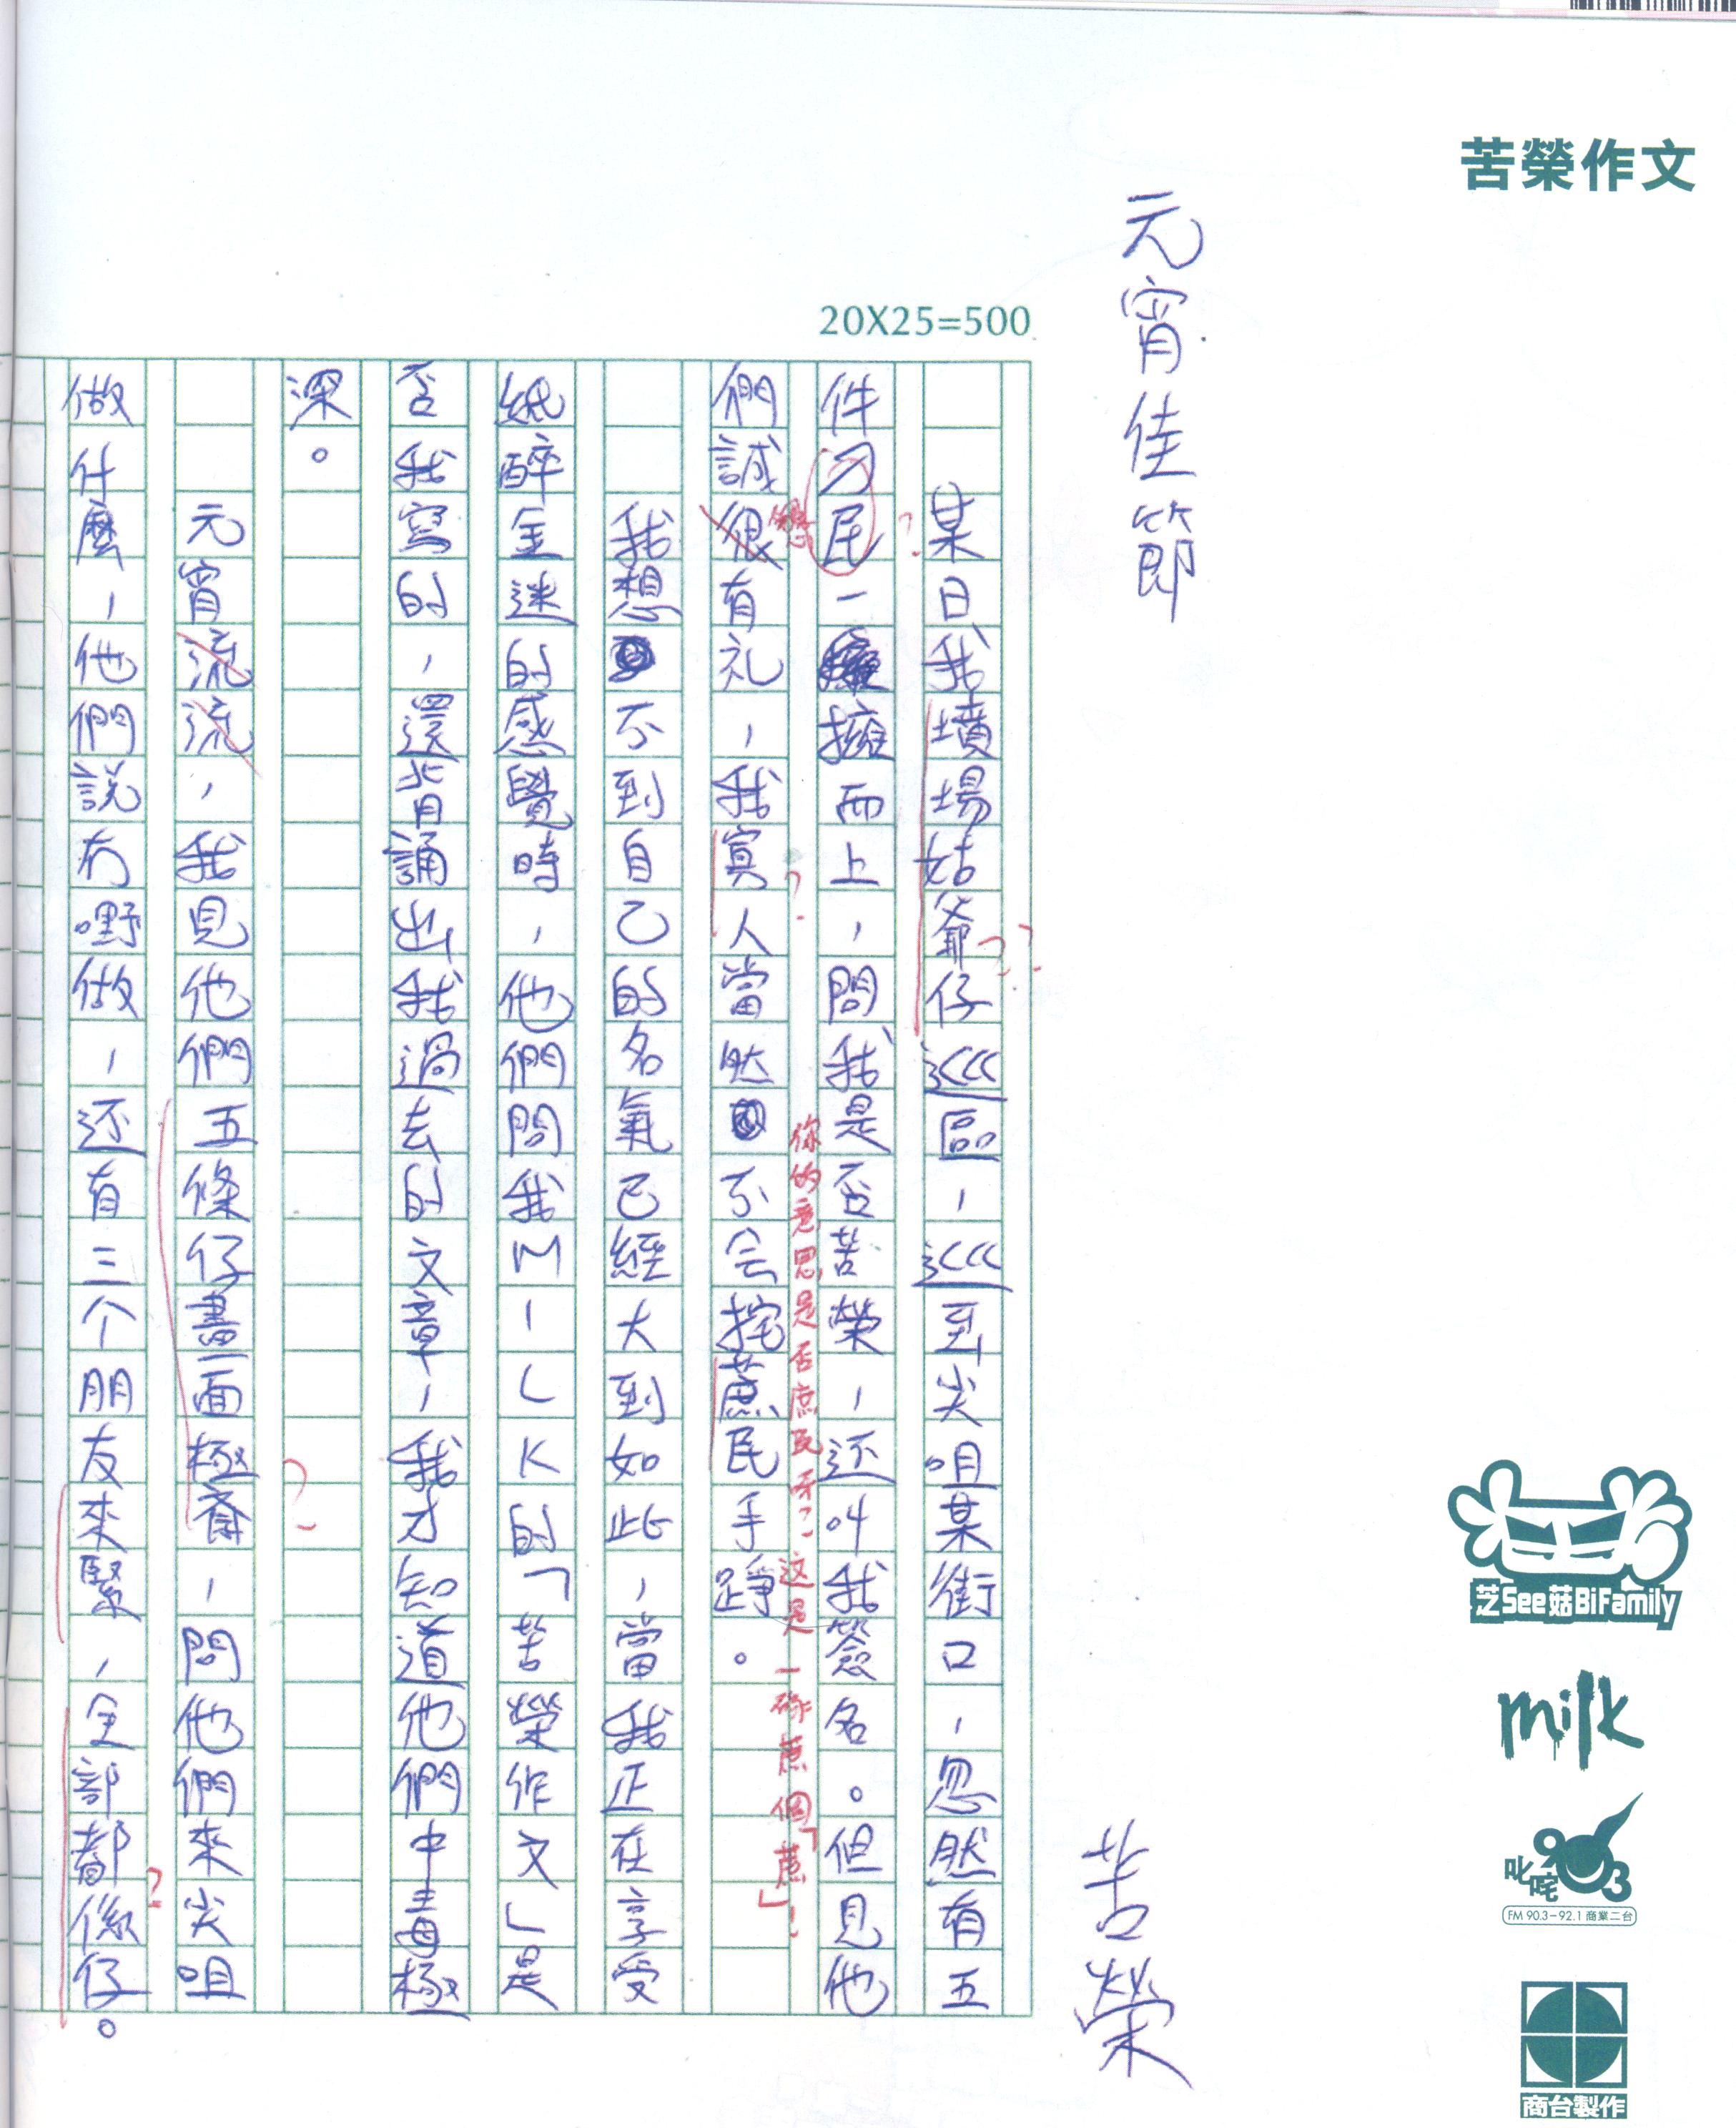 苦榮作文
元宵佳節
苦榮
20X25=500
某日我墳場姑爺仔巡區，巡到尖咀某街口，忽然有五
件刁民一擁而上，問我是否苦榮，还叫我簽名。但見他
們誠很有礼，我寘人當然不会拕蔗民手踭。
懇
你的意思是否庶民呀？这是一碌蔗個「蔗」！
我想不到自己的名氣已經大到如此，當我正在享受
紙醉金迷的感覺時，他們問我MILK的「苦榮作文」是
否我寫的，還背誦出我過去的文章，我才知道他們中毒極
深。
元宵流流，我見他們五條仔畫面極齋，問他們來尖咀
做什麼，他們說冇嘢做，还有三个朋友來緊，全部都係仔。
芝See菇BiFamily
milk
叱咤903
FM 90.3-92.1 商業二台
商台製作